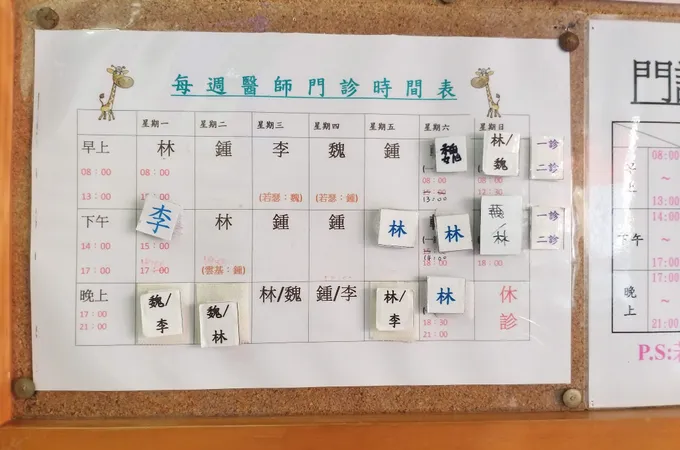 每週醫師門診時間表
星期一 星期二 星期三 星期四 星期五 星期六 星期日
早上 林 鍾 李 魏 鍾 魏 林/魏 一診
08：00 08：00 08：00 08：00 二診
13：00 (若瑟：魏) (若瑟：鍾) 13：00 12：30
下午 李 林 鍾 鍾 林 林 /林 一診
14：00 15：00 二診
17：00 17：00 (雲基：鍾) 18：00 18：00
晚上 魏/李 魏/林 林/魏 鍾/李 林/李 林 休診
17：00 18：30
21：00 21：00
門
早上 08：00
～
13：00
下午 14：00
～
17：00
晚上 17：00
～
21：00
P.S: